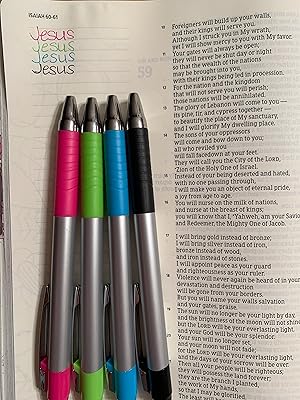 ISAIAH 60-61
Jesus
Jesus
Jesus
Jesus
10 Foreigners will build up your walls,
and their kings will serve you.
Although I struck you in My wrath,
yet I will show mercy to you with My favor.
11 Your gates will always be open;
they will never be shut day or night
so that the wealth of the nations
may be brought to you,
with their kings being led in procession.
12 For the nation and the kingdom
that will not serve you will perish;
those nations will be annihilated.
13 The glory of Lebanon will come to you —
its pine, fir, and cypress together —
to beautify the place of My sanctuary,
and I will glorify My dwelling place.
14 The sons of your oppressors
will come and bow down to you;
all who reviled you
will fall facedown at your feet.
They will call you the City of the LORD,
Zion of the Holy One of Israel.
15 Instead of your being deserted and hated,
with no one passing through,
I will make you an object of eternal pride,
a joy from age to age.
16 You will nurse on the milk of nations,
and nurse at the breast of kings;
you will know that I, Yahweh, am your Savior
and Redeemer, the Mighty One of Jacob.
17 I will bring gold instead of bronze;
I will bring silver instead of iron,
bronze instead of wood,
and iron instead of stones.
I will appoint peace as your guard
and righteousness as your ruler.
18 Violence will never again be heard of in your
devastation and destruction
will be gone from your borders.
But you will name your walls salvation
and your gates, praise.
19 The sun will no longer be your light by day,
and the brightness of the moon will not shine
but the LORD will be your everlasting light,
and your God will be your splendor.
20 Your sun will no longer set,
and your moon will not fade;
for the LORD will be your everlasting light,
and the days of your sorrow will be over.
21 Then all your people will be righteous;
they will possess the land forever;
they are the branch I planted,
the work of My hands,
so that I may be glorified.